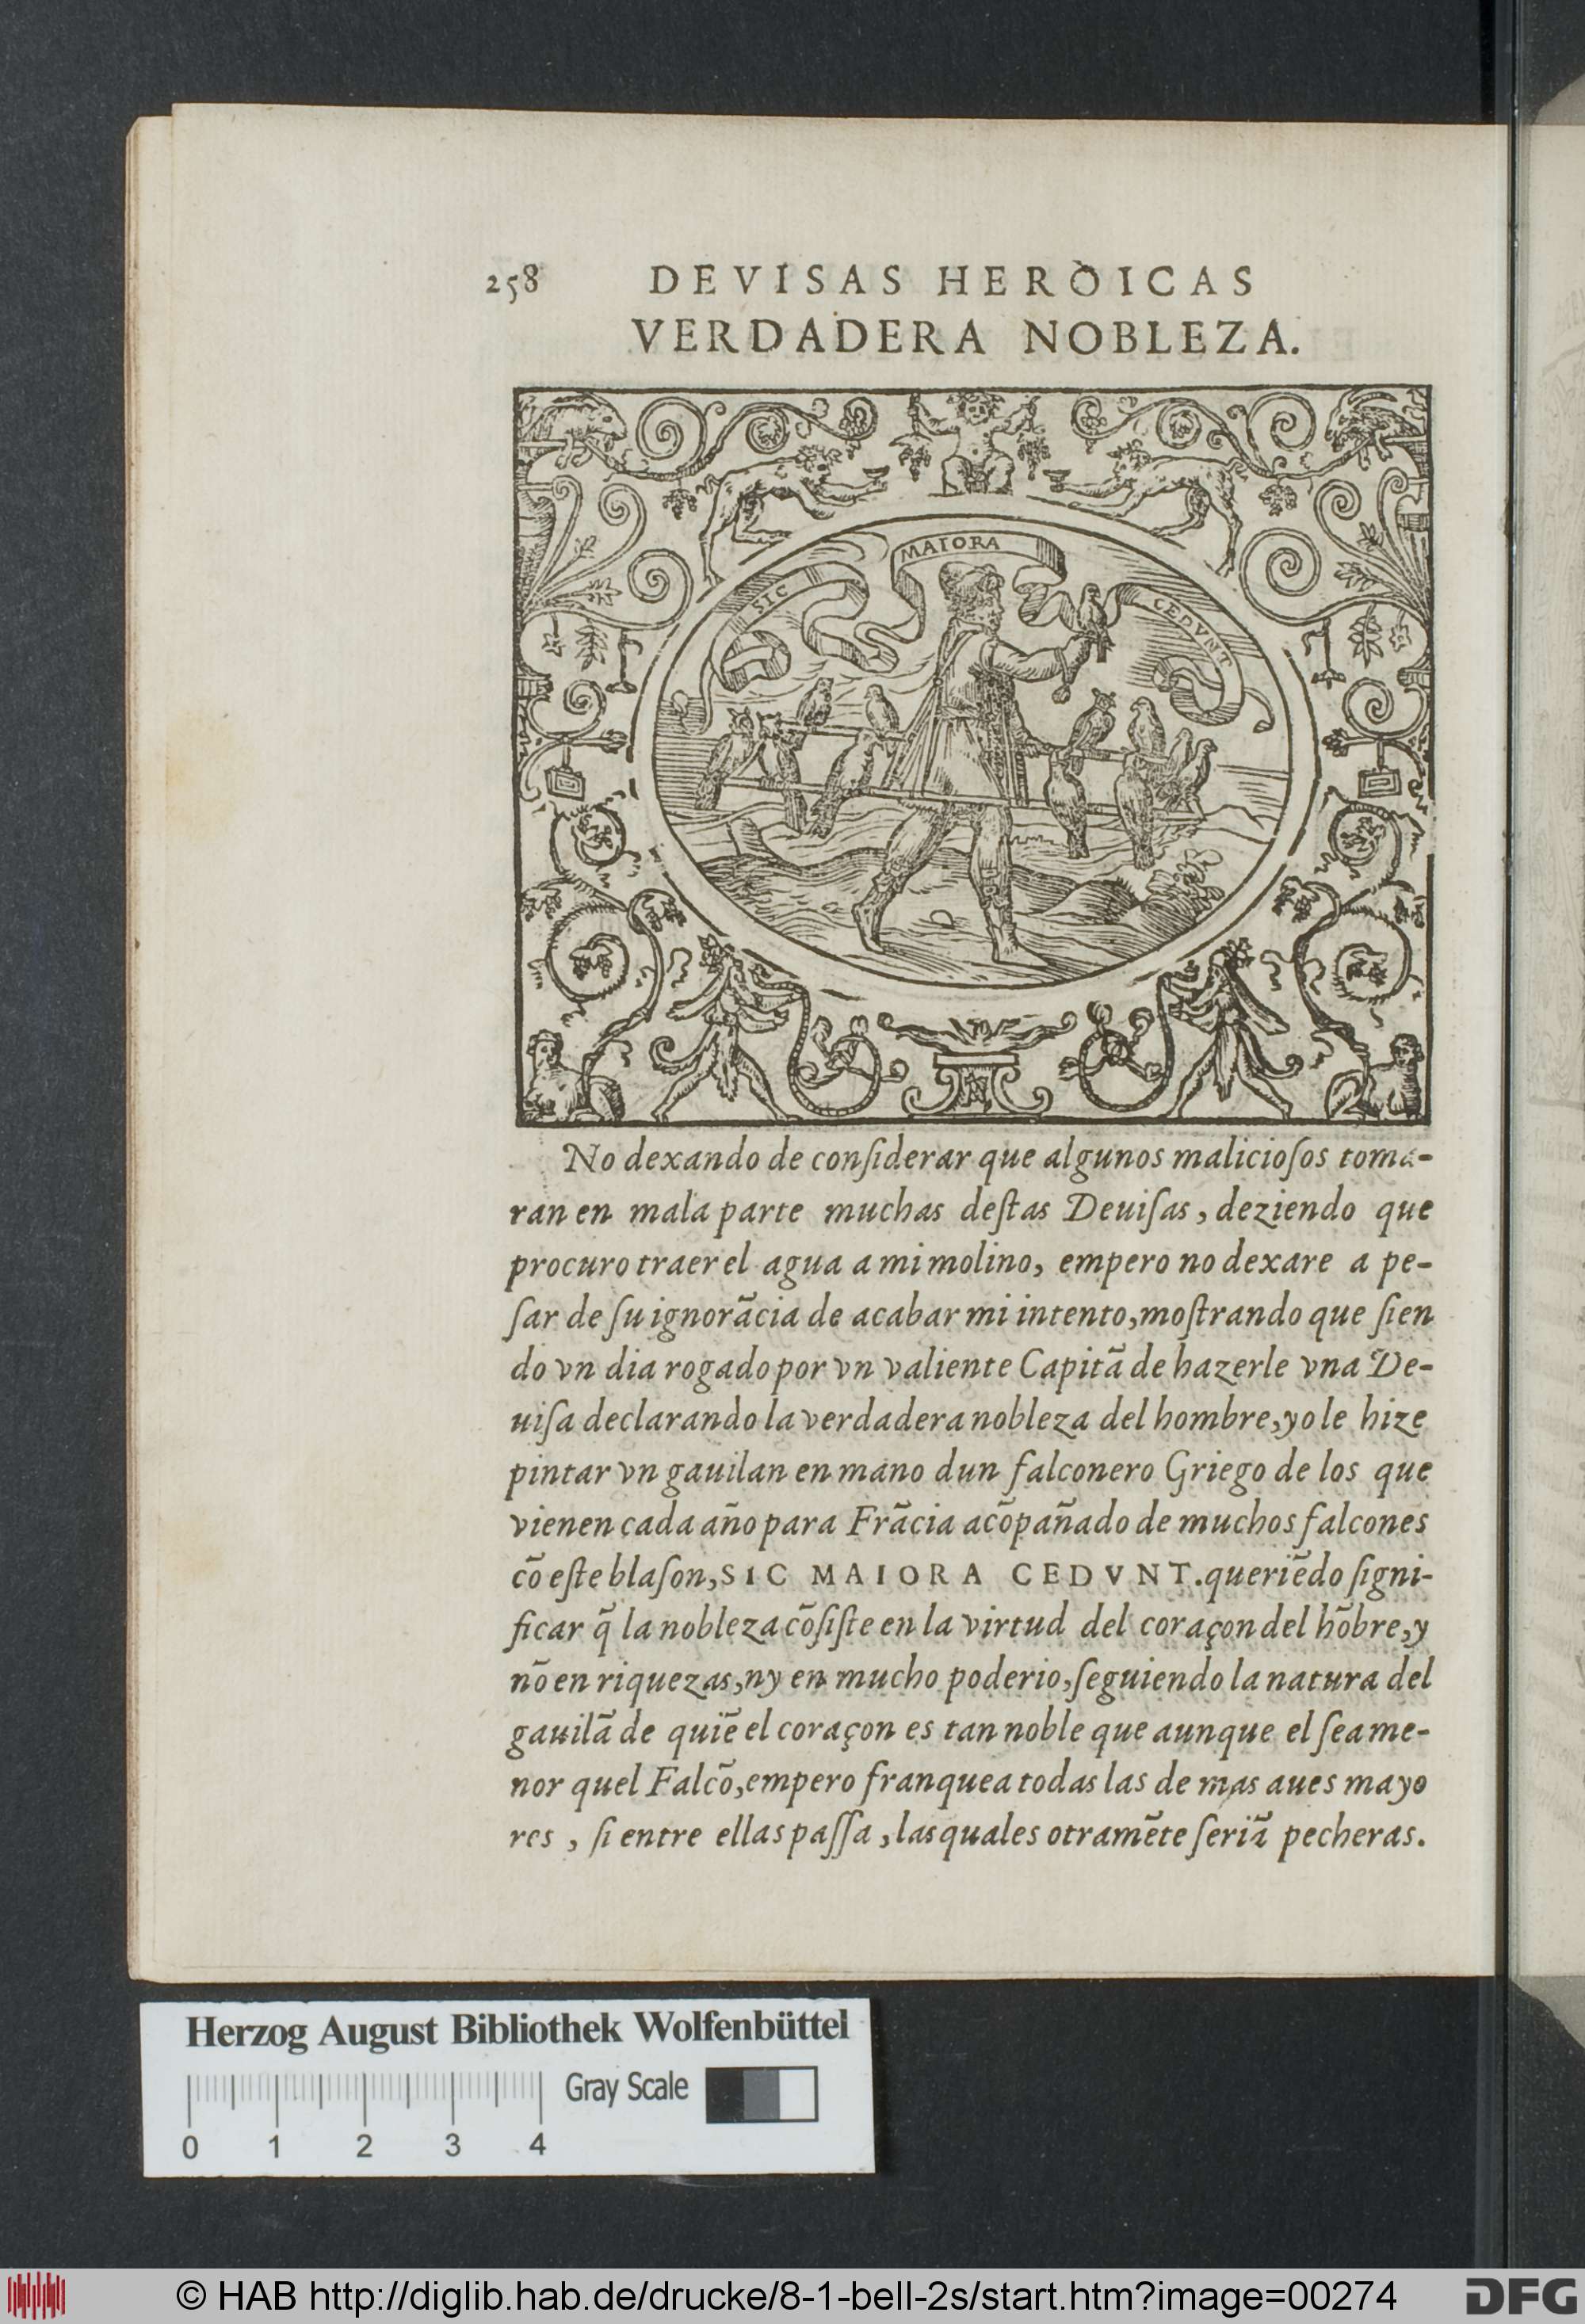 258 DEVISAS HEROICAS
VERDADERA NOBLEZA.
SIC
MAIORA
CEDVNT
No dexando de conſiderar que algunos malicioſos toma-
ran en mala parte muchas deſtas Deuiſas, deziendo que
procuro traer el agua a mi molino, empero no dexare a pe-
ſar de ſu ignorãcia de acabar mi intento, moſtrando que ſien
do vn dia rogado por vn valiente Capitã de hazerle vna De-
uiſa declarando la verdadera nobleza del hombre, yo le hize
pintar vn gauilan en mano dun falconero Griego de los que
vienen cada año para Frãcia acõpañado de muchos falcones
cõ eſte blaſon, SIC MAIORA CEDVNT. queriẽdo ſigni-
ficar q̃ la nobleza cõſiſte en la virtud del coraçon del hõbre, y
nõ en riquezas, ny en mucho poderio, ſeguiendo la natura del
gauilã de quiẽ el coraçon es tan noble que aunque el ſea me-
nor quel Falcõ, empero franquea todas las de mas aues mayo
res, ſi entre ellas paſſa, las quales otramẽte ſeriã pecheras.
Herzog August Bibliothek Wolfenbüttel
Gray Scale
0 1 2 3 4
© HAB http://diglib.hab.de/drucke/8-1-bell-2s/start.htm?image=00274
DFG